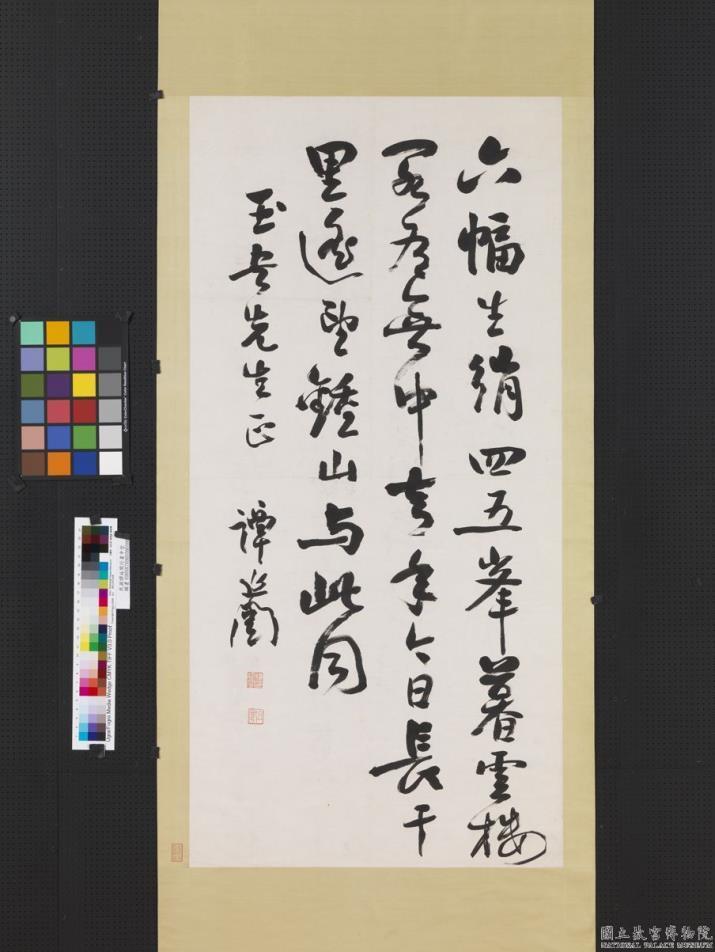 六幅生綃四五峯暮雲樓
閣有無中去年今日長干
里遙望鍾山与此同
玉先生正 譚延闓
國立故宮博物院
NATIONAL PALACE MUSEUM